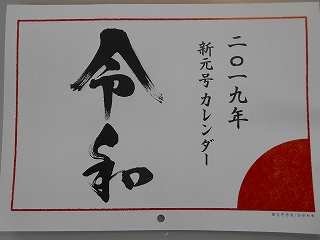 二〇一九年
新元号カレンダー
令和